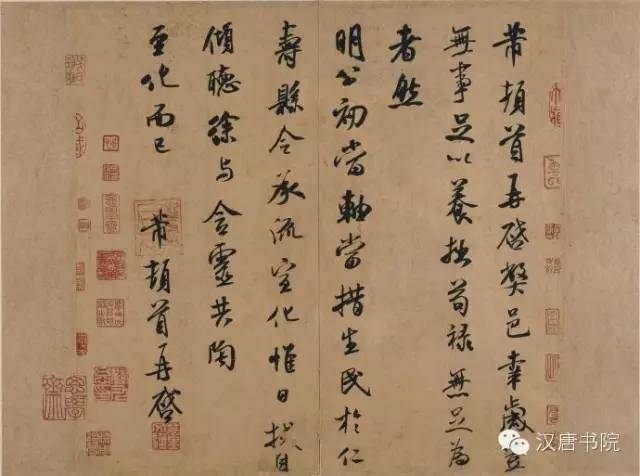 芾頓首再啓弊邑幸歲豐
無事足以養拙苟祿無足爲
者然
明公初當軸當措生民於仁
壽縣令承流宣化惟日拭目
傾聽徐與含靈共陶
至化而已
芾頓首再啓
汉唐书院